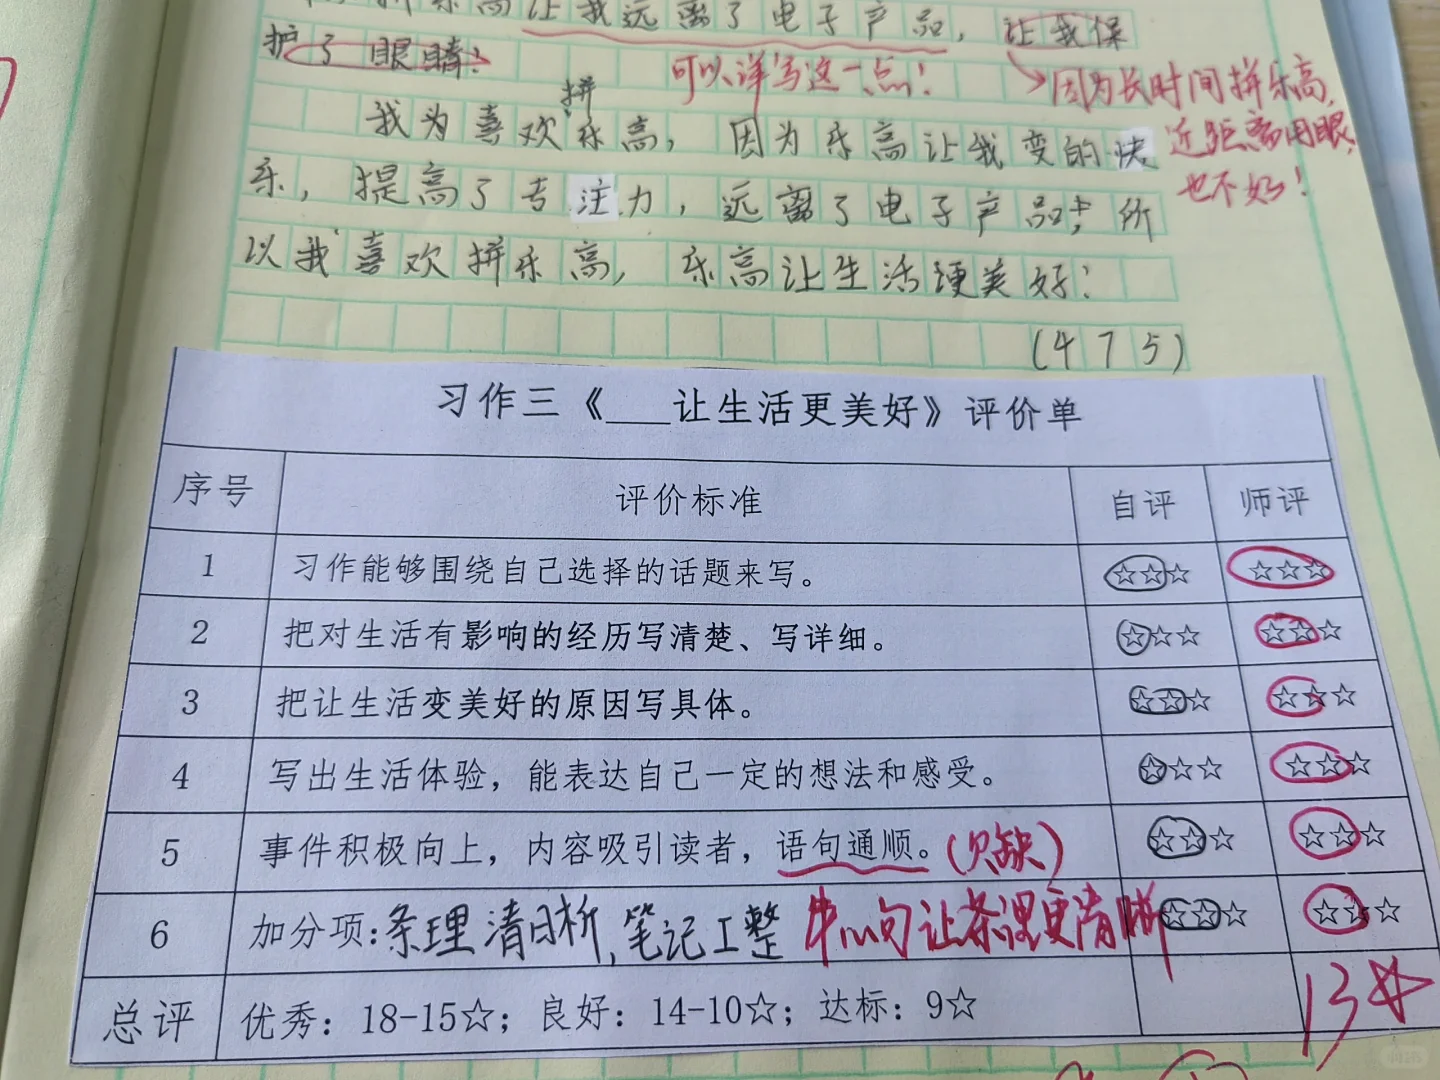 拼乐高让我远离了电子产品，让我保
护了眼睛！
可以详写这一点！
因为长时间拼乐高，
近距离用眼，
也不好！
拼
我为喜欢乐高，因为乐高让我变的快
乐，提高了专注力，远离了电子产品，所
以我喜欢拼乐高，乐高让生活更美好！
(475)
习作三《___让生活更美好》评价单
序号 评价标准 自评 师评
1 习作能够围绕自己选择的话题来写。 ☆☆☆ ☆☆☆
2 把对生活有影响的经历写清楚、写详细。 ☆☆☆ ☆☆☆
3 把让生活变美好的原因写具体。 ☆☆☆ ☆☆☆
4 写出生活体验，能表达自己一定的想法和感受。 ☆☆☆ ☆☆☆
5 事件积极向上，内容吸引读者，语句通顺。(欠缺) ☆☆☆ ☆☆☆
6 加分项：条理清晰，笔记工整 中心句让条理更清晰 ☆☆☆ ☆☆☆
总评 优秀：18-15☆；良好：14-10☆；达标：9☆ 13☆